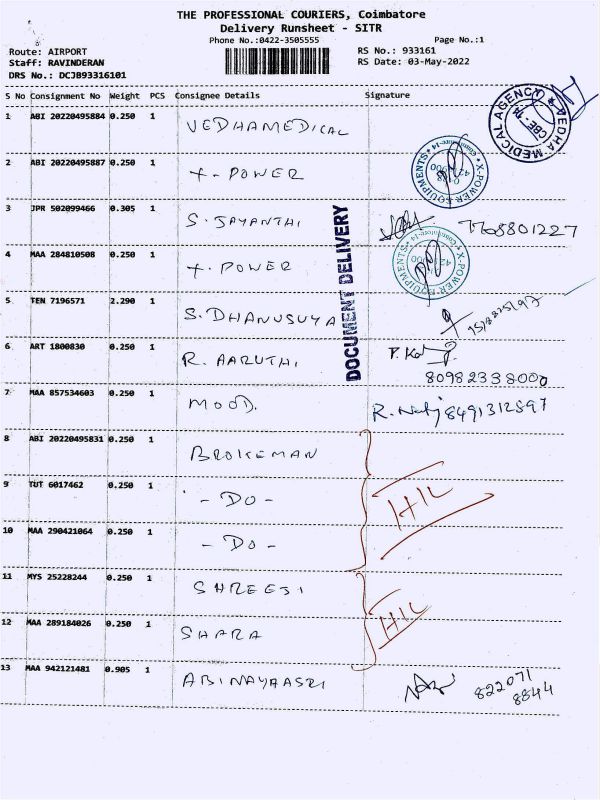 THE PROFESSIONAL COURIERS, Coimbatore
Delivery Runsheet - SITR
Phone No.:0422-3505555 Page No.:1
Route: AIRPORT RS No.: 933161
Staff: RAVINDERAN RS Date: 03-May-2022
DRS No.: DCJB93316101
S No Consignment No Weight PCS Consignee Details Signature
1 ABI 20220495884 0.250 1 VEDHAMEDICAL
VEDHA MEDICAL AGENCY CBE - 14
2 ABI 20220495887 0.250 1 X - POWER
X-POWER EQUIPMENTS Coimbatore-14
3 JPR 502099466 0.305 1 S. JAYANTHI 7768801227
4 MAA 284810508 0.250 1 X. POWER
X-POWER EQUIPMENTS Coimbatore-14
DOCUMENT DELIVERY
5 TEN 7196571 2.290 1 S. DHANUSUYA
6 ART 1800830 0.250 1 R. AARUTHI
80982338000
7 MAA 857534603 0.250 1 MOOD. R. 8491312897
8 ABI 20220495831 0.250 1 BROKEMAN
9 TUT 6017462 0.250 1 - DO - H/L
10 MAA 290421064 0.250 1 - DO -
11 MYS 25228244 0.250 1 SHREEJI
12 MAA 289184026 0.250 1 SHARA H/L
13 MAA 942121481 0.905 1 ABINAYAASRI 822071
8844